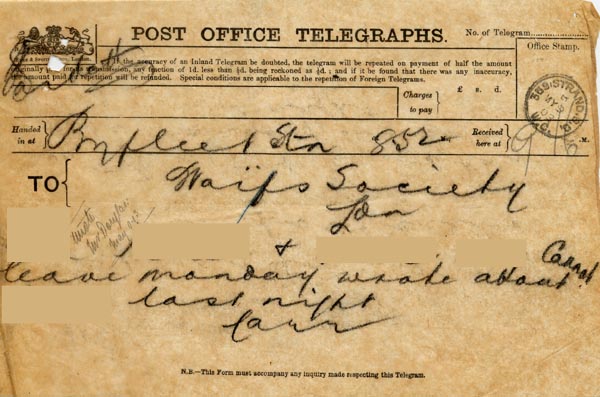 POST OFFICE TELEGRAPHS.
No. of Telegram
If the accuracy of an Inland Telegram be doubted, the telegram will be repeated on payment of half the amount
originally paid for its transmission, any fraction of 1d. less than ½d. being reckoned as ½d.; and if it be found that there was any inaccuracy,
the amount paid for repetition will be refunded. Special conditions are applicable to the repetition of Foreign Telegrams.
Office Stamp.
Charges to pay
£ s. d.
Handed in at
Stn 852
Received here at
9 .M.
TO
Waifs Society
Ldn
&
Cannot
leave monday wrote about
last night
Carr
N.B.—This Form must accompany any inquiry made respecting this Telegram.